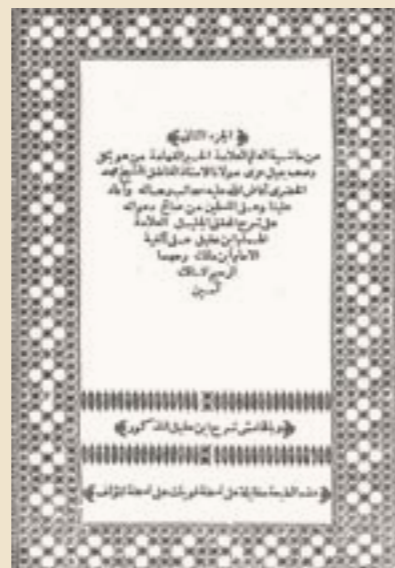 ﴿الجزء الثاني﴾
من حاشية العالم العلامة الحبر الفهامة من هو بكل
وصف جميل حرى مولانا الاستاذ الفاضل الشيخ محمد
الخضرى أفاض الله عليه سحائب وأعاد
علينا وعلى المسلمين من صالح دعواته
على شرح المحقق الجليل العلامة
ابن عقيل على ألفية
الامام ابن مالك رحمهما
الرحيم المالك
آمين
﴿وبالهامش شرح ابن عقيل المذكور﴾
﴿هذه الطبعة مقابلة على نسخة قوبلت على نسخة المؤلف﴾